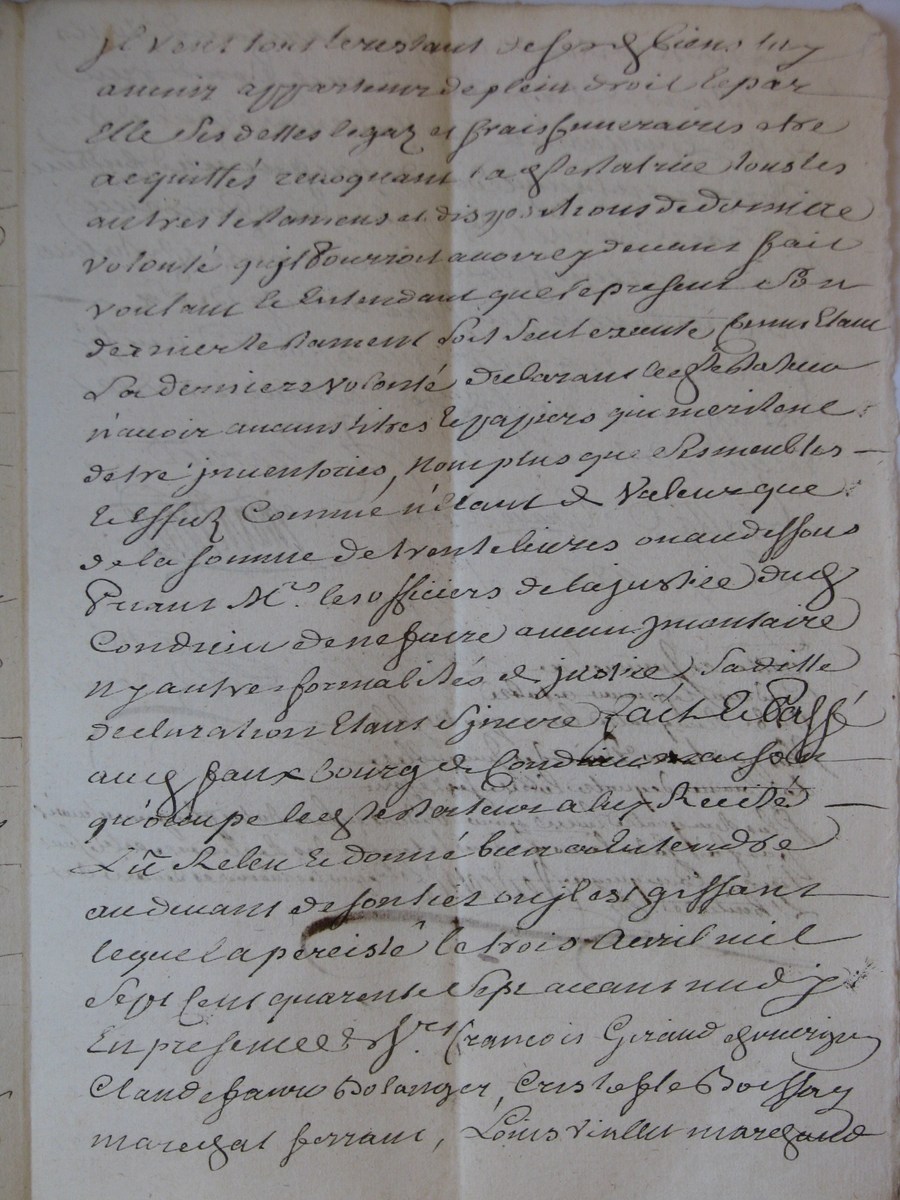 il veut tout le restant de ses d biens luy
avenir appartenir de plein droit et par
Elle ses dettes legaz et frais funeraires etre
acquittés revoquant la d testatrice tous les
autres testamens et dispositions de derniere
volonté qu'jl pourroit avoir cy devant fait
voulant et Entendant que le present son
dernier testament soit seul executé comme Etant
sa derniere volonté declarant le d testateur
n'avoir aucuns titres et papiers qui meritent
detre jnventoriés, nom plus que ses meubles
et effetz comme n'etant de valeur que
de la somme de trente livres ou au dessous
Priant Mrs. les officiers de la justice dud
Condrieu de ne faire aucun jnventaire
ny autres formalités de justice sa ditte
declaration Etant sincere fait et Passé
aud faux bourg de Condrieu maison
qu'ocupe le d testateur a luy Recité
Lû Releu et donné bien a Entendre
au devant de son lict ou jl est gissant
lequel a percisté le trois avril mil
sept Cent quarente sept avant midy
En presence de Sr. francois Giraud
Claude favre Bolanger, Cristofle Boissat
marechal ferrant, Louis viallet marchand